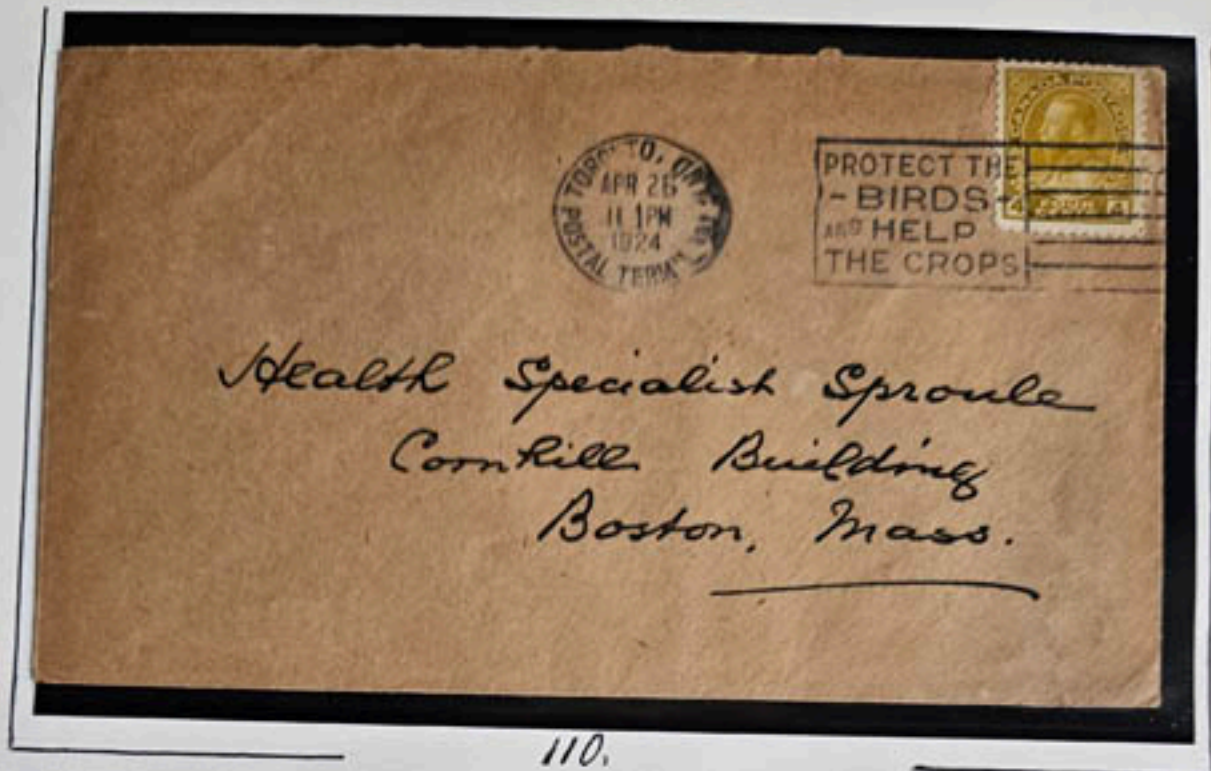 TORONTO, ONT.
APR 26
11 1PM
1924
POSTAL TERM'L
PROTECT THE
- BIRDS -
AND HELP
THE CROPS
CANADA POSTAGE
4 4
Health Specialist Sproule
Cornhill Building
Boston, Mass.
110.